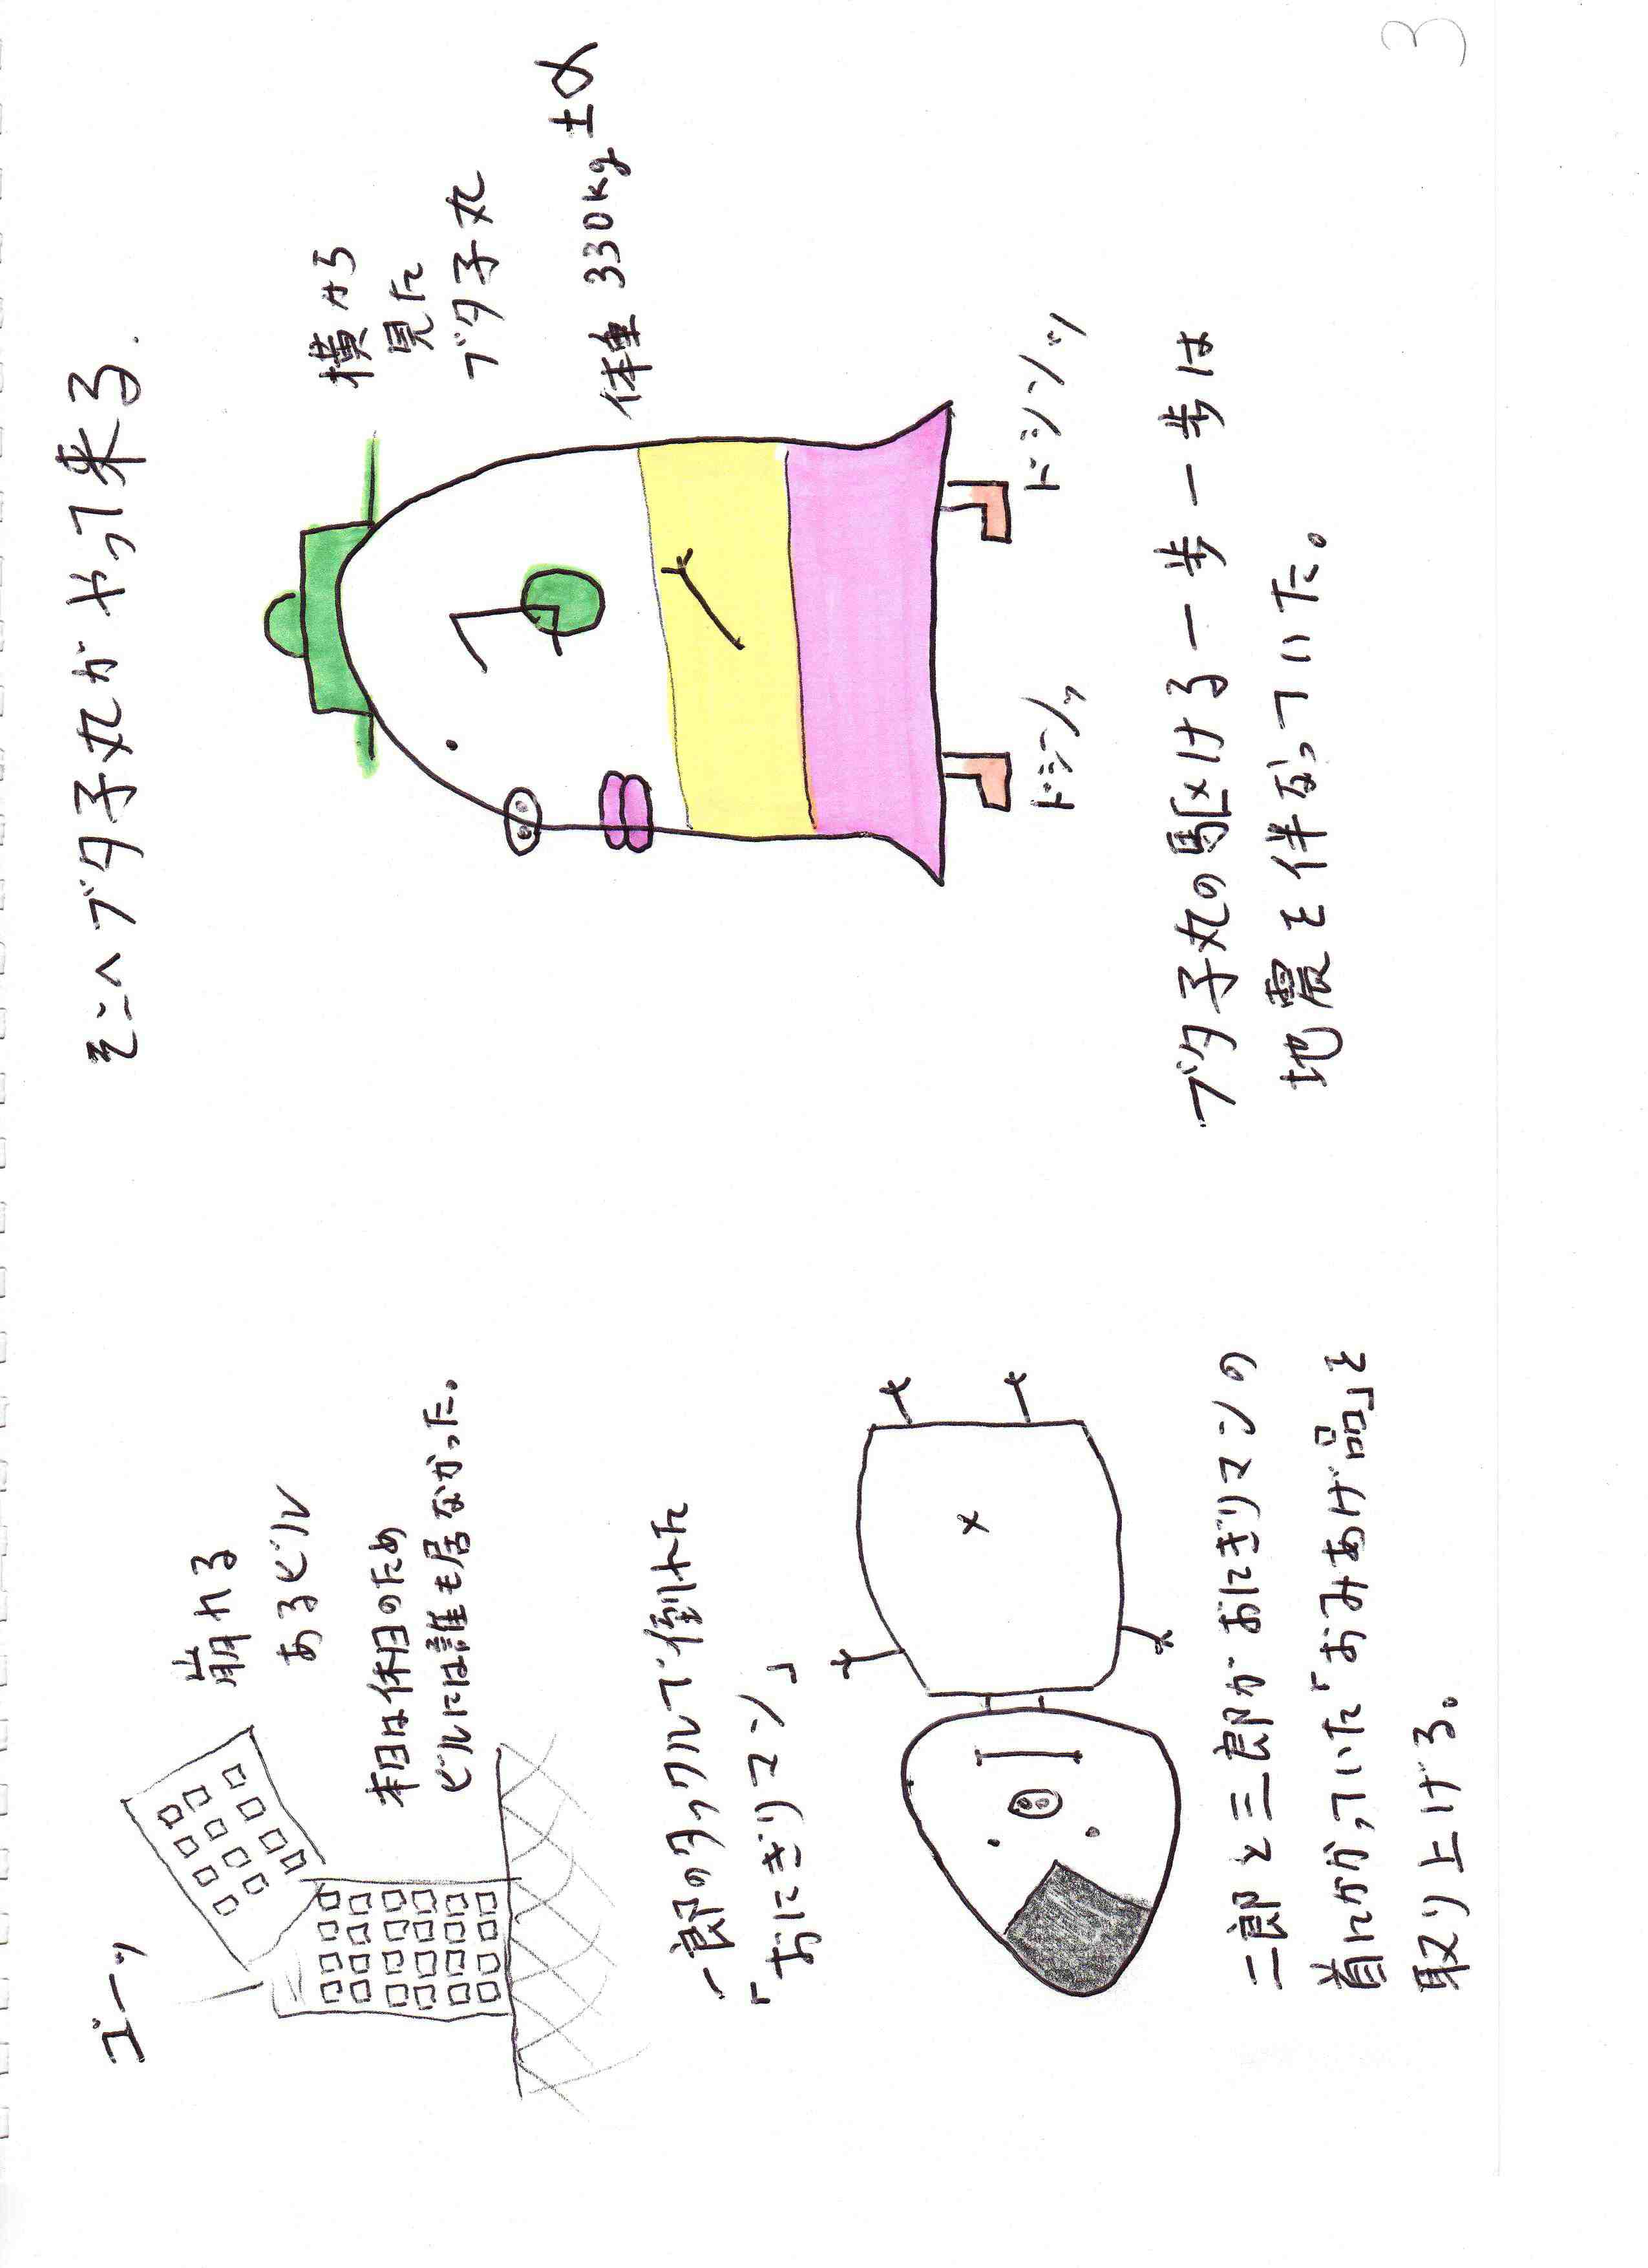 ゴーッ
崩れる
あるビル
本日は休日のため
ビルには誰も居なかった。
一郎のタックルで倒れた
「おにぎりマン」
二郎と三郎がおにぎりマンの
首にかかっていた「おみあげ品」を
取り上げる。
そこへブタ子丸がやって来る.
横から
見た
ブタ子丸
体重 330kg ±α
ドシンッ
ドシンッ
ブタ子丸の駆ける一歩一歩は
地震を伴なっていた。
3